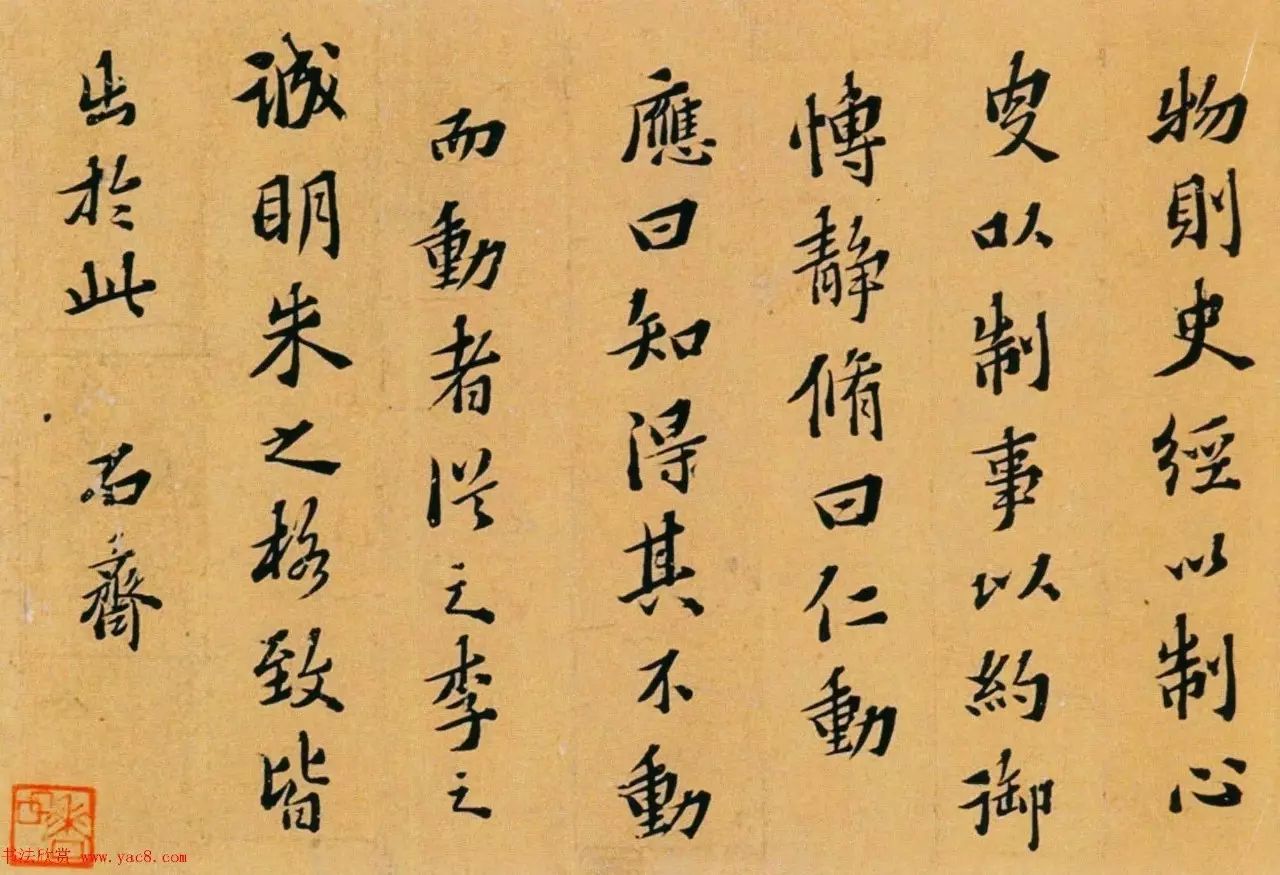 物則史經以制心
史以制事以約御
博靜脩曰仁動
應曰知得其不動
而動者從之李之
誠明朱之格致皆
出於此
齊
书法欣赏 www.yac8.com